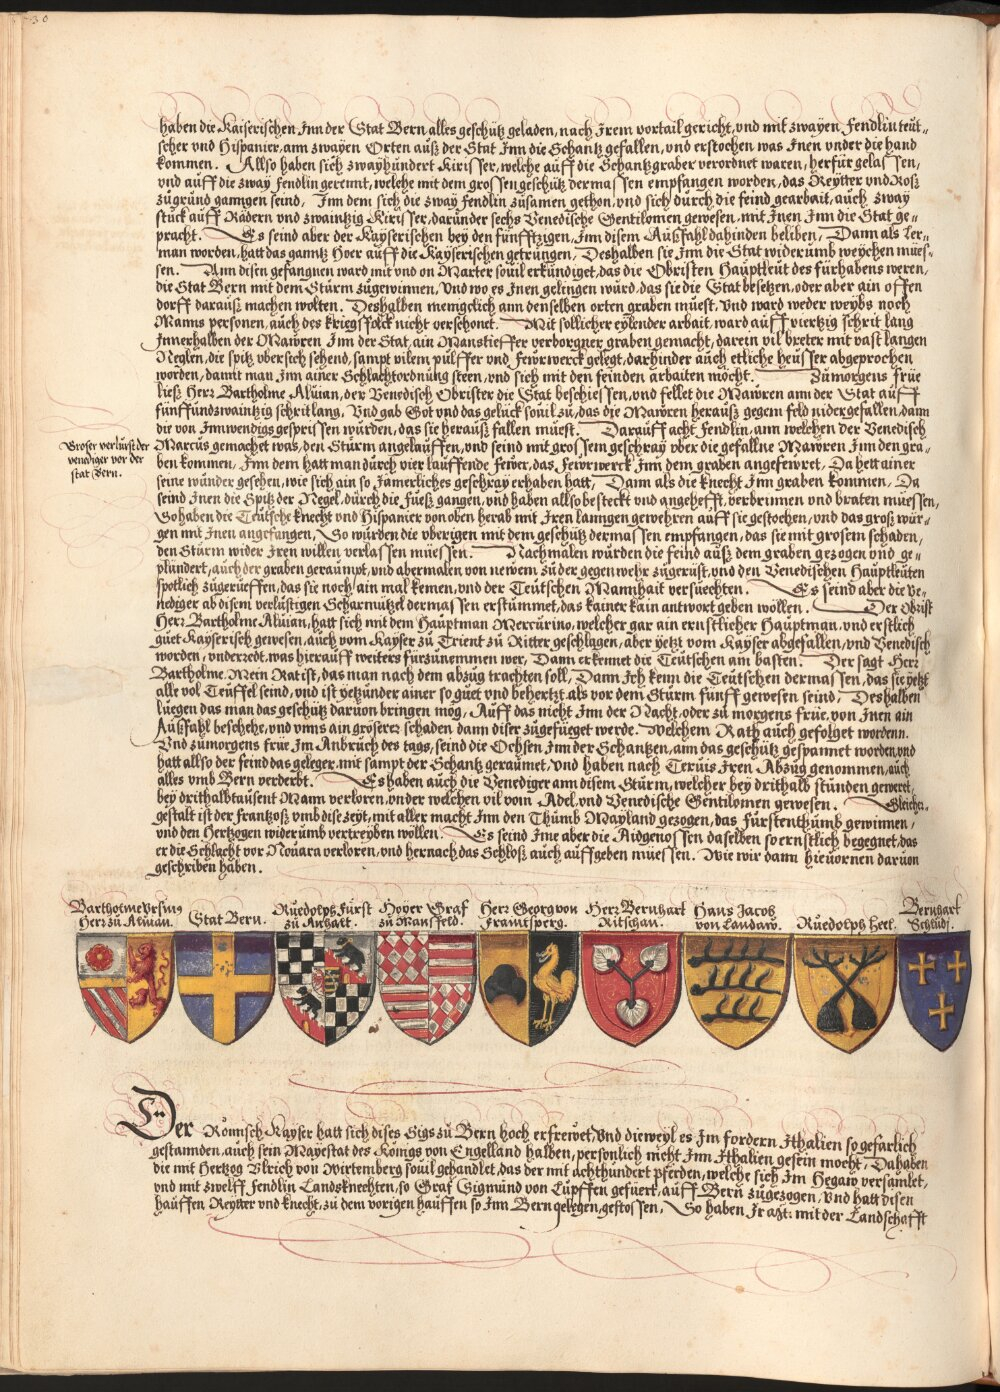 30
haben die Kaiserischen Jnn der Stat Bern alles geschütz geladen, nach Jrem vortail gericht, vnd mit zwayen Fendlin teüt-
scher vnd Hispanier, ann zwayen Orten auß der Stat Jnn die Schantz gefallen, vnd erstochen was Jnen vnder die hand
kommen. Allso haben sich zwayhündert Kirisser, welche auff die Schantzgraber verordnet waren, herfür gelassen,
vnd auff die zway fendlin gerennt, welche mit dem grossen geschütz dermassen empfangen worden, das Reytter vnd Roß
zügründ ganngen seind, Jnn dem sich die zway fendlin züsamen gethon, vnd sich dürch die feind gearbait, auch zway
stück auff Rädern vnd zwaintzig Kirisser, daründer sechs Venedische Gentilomen gewesen, mit Jnen Jnn die Stat ge-
pracht. Es seind aber der Kayserischen bey den fünfftzigen, Jnn disem Außfahl dahinden beliben, Dann als Ler-
man worden, hatt das ganntz Hoer auff die Kayserischen getrüngen, Deshalben sie Jnn die Stat widerumb weychen mües-
sen. Ann disen gefangnen ward mit vnd on Marter souil erkündiget, das die Obristen Haüptleüt des fürhabens weren,
die Stat Bern mit dem Stürm zügewinnen, Vnd wo es Jnen gelingen würd, das sie die Stat besetzen, oder aber ain offen
dorff daraüß machen wolten. Deshalben menigclich ann denselben orten graben müest, Vnd ward weder weybs noch
Manns personen, auch des kriegsfolck nicht verschonet. Mit sollicher eylender arbait, ward auff viertzig schrit lang
Jnnerhalben der Maẅren Jnn der Stat, ain Manstieffer verborgner graben gemacht, darein vil breter mit vast langen
Neglen, die spitz vbersich sehend, sampt vilem pülffer vnd fewrwerck gelegt, darhinder auch etliche heüsser abgeprochen
worden, damit man Jnn ainer Schlachtordnüng steen, vnd sich mit den feinden arbaiten möcht. Zümorgens früe
ließ Herr Bartholme Aluian, der Venedisch Obrister die Stat beschiessen, vnd fellet die Maẅren ann der Stat auff
fünffündzwaintzig schrit lang, Vnd gab Got vnd das gelück souil zü, das die Maẅren heraüß gegem feld nider gefallen, dann
die von Jnnwendigs gesprissen würden, das sie heraüß fallen müest. Daraüff acht Fendlin, ann welchen der Venedisch
Marcüs gemachet was, den Stürm angelaüffen, vnd seind mit grossem geschray vber die gefallne Maẅren Jnn den gra-
ben kommen, Jnn dem hatt man dürch vier lauffende fewer, das fewrwerck Jnn dem graben angefewret, Da hett ainer
seine wünder gesehen, wie sich ain so Jämerliches geschray erhaben hatt, Dann als die knecht Jnn graben kommen, Da
seind Jnen die Spitz der Negel, dürch die füeß gangen, vnd haben allso besteckt vnd angehefft, verbrinnen vnd braten müessen,
So haben die Teütsche knecht vnd Hispanier von oben herab mit Jren lanngen gewehren auff sie gestochen, vnd das groß wür-
gen mit Jnen angefangen, So würden die vberigen mit dem geschütz dermassen empfangen, das sie mit grosem schaden,
den Stürm wider Jren willen verlassen müessen. Nachmalen würden die feind auß dem graben gezogen vnd ge-
plündert, auch der graben geraümpt, vnd abermalen von newem zü der gegenwehr zügerüst, vnd den Venedischen Haüptleüten
spotlich zügerüeffen, das sie noch ain mal kemen, vnd der Teütschen Mannhait versüechten. Es seind aber die Ve-
nediger ab disem verlüstigen Scharmützel dermassen erstümmet, das kainer kain antwort geben wollen. Der Obrist
Herr Bartholme Aluian, hatt sich mit dem Haüptman Mercürino, welcher gar ain ernstlicher Haüptman, vnd erstlich
güet Kayserisch gewesen, auch vom Kayser zü Trient zü Ritter geschlagen, aber yetzt vom Kayser abgefallen, vnd Venedisch
worden, vnderredt, was hieraüff weiters fürzünemmen wer, Dann er kennet die Teütschen am basten. Der sagt Herr
Bartholme, Mein Rat ist, das man nach dem abzüg trachten soll, Dann Jch kenn die Teütschen dermassen, das sie yetzt
alle vol Teüffel seind, vnd ist yetzünder ainer so güet vnd behertzt, als vor dem Stürm fünff gewesen seind, Deshalben
lüegen das man das geschütz daruon bringen mög, Auff das nicht Jnn der Nacht, oder zü morgens früe, von Jnen ain
Aüßfahl beschehe, vnd vnns ain gröserer schaden dann diser zügefüeget werde. Welchem Rath auch gefolget wordenn.
Vnd zümorgens früe Jm Anbrüch des tags, seind die Ochsen Jnn der Schantzen, ann das geschütz gespannet worden, vnd
hatt allso der feind das geleger, mit sampt der Schantz geraümet, vnd haben nach Teruis Jren Abzüg genommen, auch
alles vmb Bern verderbt. Es haben auch die Venediger ann disem Stürm, welcher bey drithalb stünden geweret,
bey drithalbtaüsent Mann verloren, vnder welchen vil vom Adel, vnd Venedische Gentilomen gewesen. Gleicher-
gestalt ist der Frantzoß vmb dise zeyt, mit aller macht Jnn den Thumb Mayland gezogen, das fürstenthümb gewinnen,
vnd den Hertzogen widerümb vertreyben wöllen. Es seind Jme aber die Aidgenossen daselben so ernstlich begegnet, das
er die Schlacht vor Nouara verloren, vnd hernach das Schloß auch auffgeben müessen. Wie wir dann hieuornen daruon
geschriben haben.
Groser verlürst der
venediger vor der
stat Bern.
Bartholme Vrsinus
Herr zü Aluian.
Stat Bern.
Rüedolph Fürst
zü Anhalt.
Hoyer Graf
zü Mansfeld.
Herr Georg von
Franntsperg.
Herr Bernhart
Ritschan.
Hans Jacob
von Landaw.
Rüedolph Heel.
Bernhart
Schlüdi.
Der Römisch Kayser hatt sich dises Sigs zü Bern hoch erfrewet, Vnd dieweyl es Jm fordern Jthalien so gefarlich
gestannden, auch sein Mayestat des Königs von Engelland halben, personlich nicht Jnn Jthalien gesein mocht, Da haben
die mit Hertzog Vlrich von Wirtemberg souil gehandlet, das der mit achthündert pferden, welche sich Jm Hegaw versamlet,
vnd mit zwelff fendlin Landsknechten, so Graf Sigmünd von Lüpffen gefüert, auff Bern zügezogen, Vnd hatt disen
hauffen Reytter vnd knecht, zü dem vorigen hauffen so Jnn Bern gelegen, gestossen, So haben Jr a͏ꜩt: mit der Landschafft